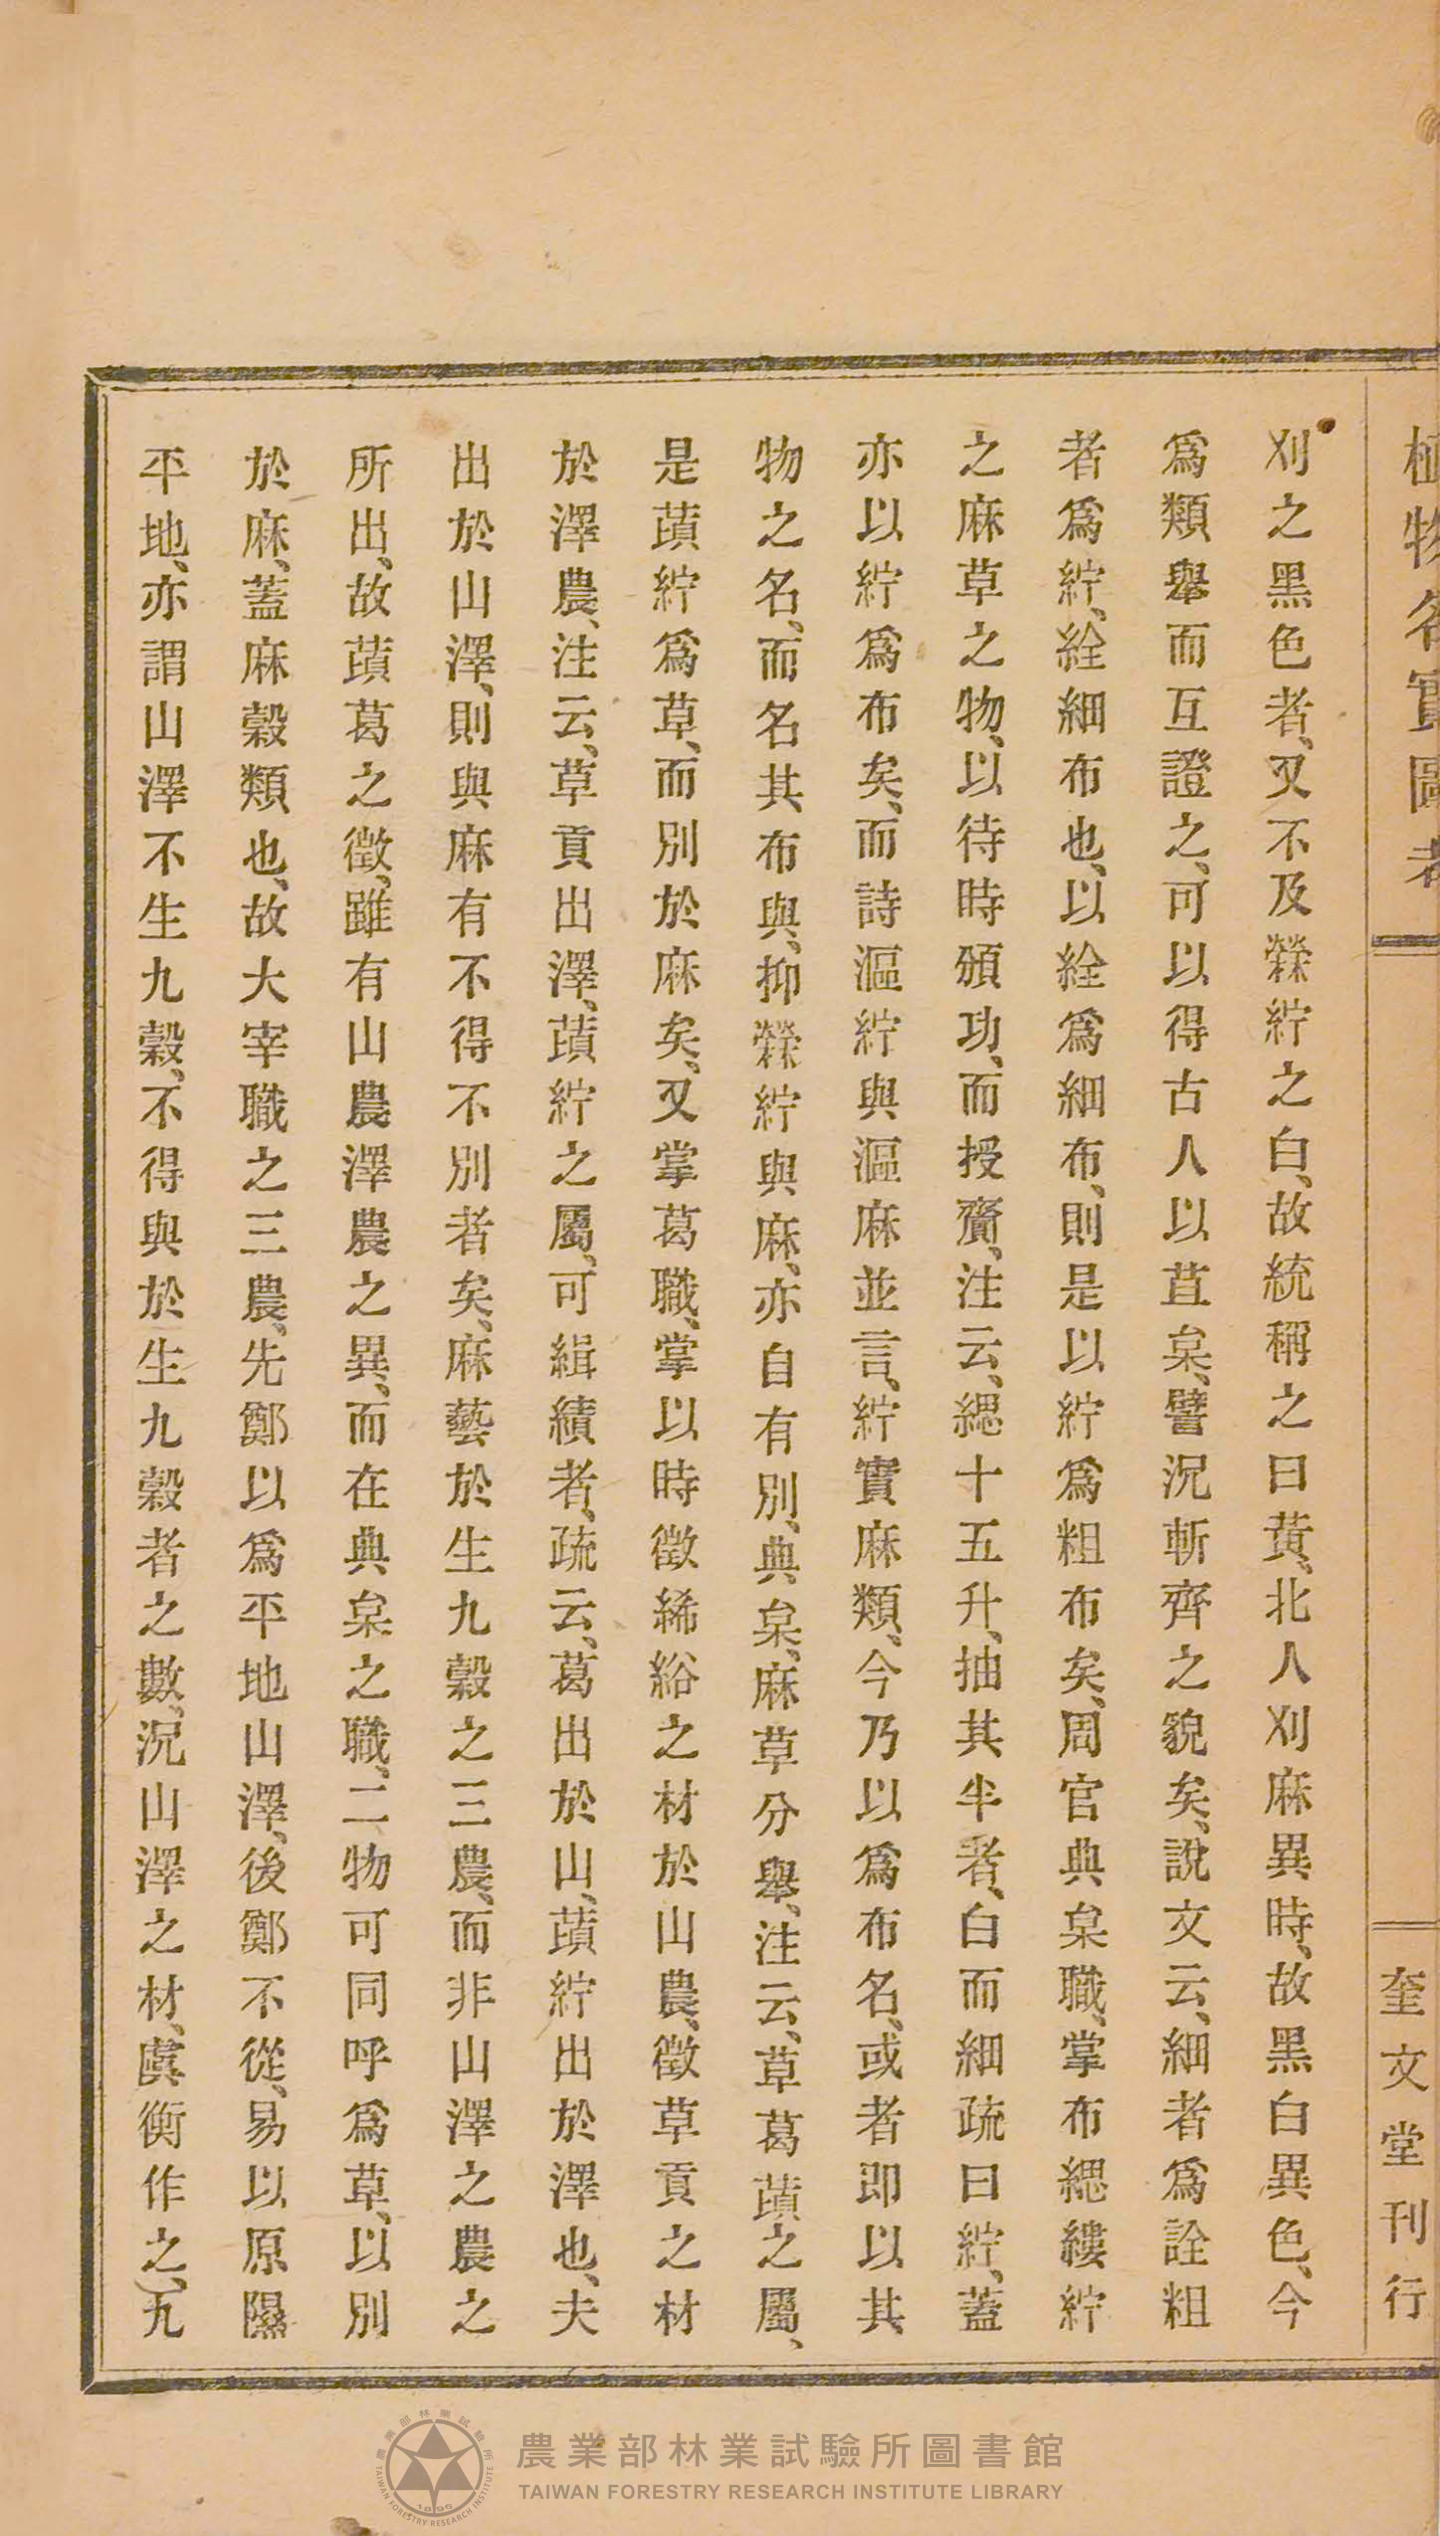 植物名實圖考
奎文堂刊行
刈之黑色者、又不及縈紵之白、故統稱之曰蕡、北人刈麻異時、故黑白異色、今
爲類舉而互證之、可以得古人以苴枲、譬況斬齊之貌矣、說文云、細者爲詮粗
者爲紵、絟細布也、以絟爲細布、則是以紵爲粗布矣、周官典枲職、掌布緦縷紵
之麻草之物、以待時頒功、而授齎、注云、緦十五升、抽其半者、白而細疏曰紵、蓋
亦以紵爲布矣、而詩漚紵與漚麻並言、紵實麻類、今乃以爲布名、或者即以其
物之名、而名其布與、抑縈紵與麻、亦自有別、典枲、麻草分舉、注云、草葛䔰之屬、
是䔰紵爲草、而別於麻矣、又掌葛職、掌以時徵絺綌之材於山農、徵草貢之材
於澤農、注云、草貢出澤、䔰紵之屬、可緝績者、疏云、葛出於山、䔰紵出於澤也、夫
出於山澤、則與麻有不得不別者矣、麻藝於生九穀之三農、而非山澤之農之
所出、故䔰葛之徵、雖有山農澤農之異、而在典枲之職、二物可同呼爲草、以別
於麻、蓋麻穀類也、故大宰職之三農、先鄭以爲平地山澤、後鄭不從、易以原隰
平地、亦謂山澤不生九穀、不得與於生九穀者之數、況山澤之材、虞衡作之、九
農業部林業試驗所圖書館
TAIWAN FORESTRY RESEARCH INSTITUTE LIBRARY